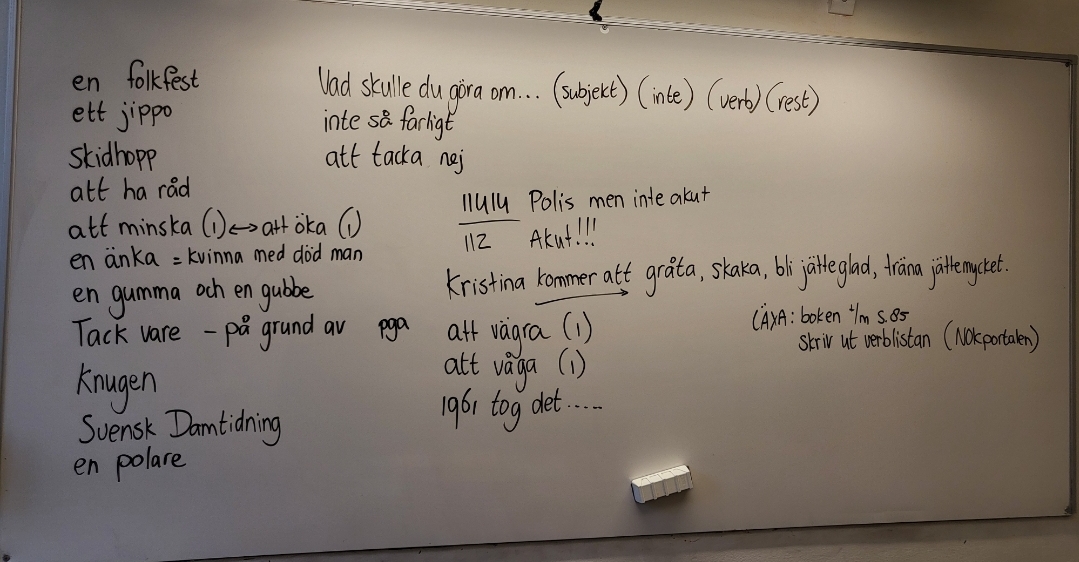 en folkfest
ett jippo
skidhopp
att ha råd
att minska (1) ↔ att öka (1)
en änka = kvinna med död man
en gumma och en gubbe
Tack vare - på grund av pga
Knugen
Svensk Damtidning
en polare
Vad skulle du göra om... (subjekt) (inte) (verb) (rest)
inte så farligt
att tacka nej
11414 Polis men inte akut
112 Akut!!!
Kristina kommer att gråta, skaka, bli jätteglad, träna jättemycket.
att vägra (1)
att våga (1)
1961 tog det.....
LÄXA: boken t/m s.85
Skriv ut verblistan (NOKportalen)